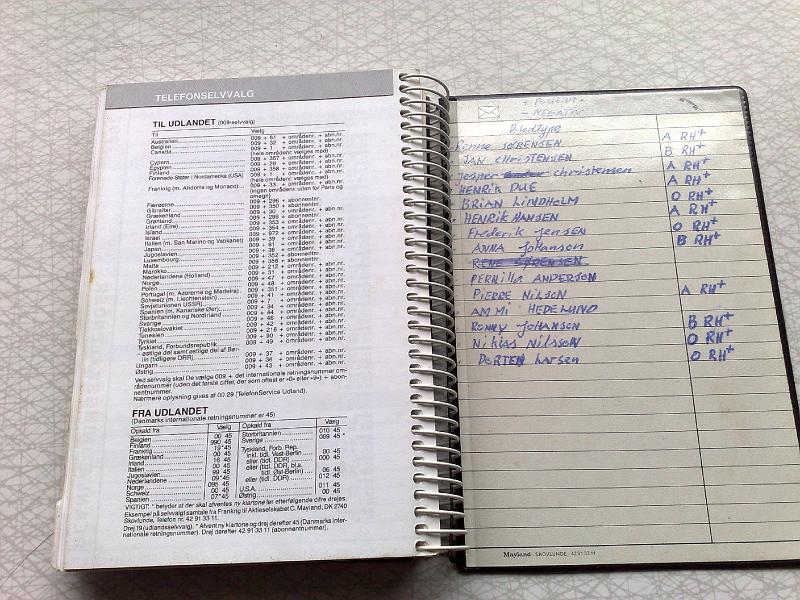 TELEFONSELVVALG
TIL UDLANDET (009-selvvalg)
Til Vælg
Australien 009 + 61 + områdenr. + abn.nr.
Belgien 009 + 32 + områdenr. + abn.nr.
Canada 009 + 1 + områdenr. + abn.nr.
(hele områdenr. vælges med)
Cypern 009 + 357 + områdenr. + abn.nr.
Egypten 009 + 20 + områdenr. + abn.nr.
Finland 009 + 358 + områdenr. + abn.nr.
Forenede Stater i Nordamerika (USA) 009 + 1 + områdenr. + abn.nr.
(hele områdenr. vælges med)
Frankrig (m. Andorra og Monaco) 009 + 33 + områdenr. + abn.nr.
(ingen områdenr. uden for Paris og
omegn)
Færøerne 009 + 298 + abonnentnr.
Gibraltar 009 + 350 + abonnentnr.
Grækenland 009 + 30 + områdenr. + abn.nr.
Grønland 009 + 299 + abonnentnr.
Irland (Eire) 009 + 353 + områdenr. + abn.nr.
Island 009 + 354 + områdenr. + abn.nr.
Israel 009 + 972 + områdenr. + abn.nr.
Italien (m. San Marino og Vatikanet) 009 + 39 + områdenr. + abn.nr.
Japan 009 + 81 + områdenr. + abn.nr.
Jugoslavien 009 + 38 + områdenr. + abn.nr.
Luxembourg 009 + 352 + abonnentnr.
Malta 009 + 356 + abonnentnr.
Marokko 009 + 212 + områdenr. + abn.nr.
Nederlandene (Holland) 009 + 31 + områdenr. + abn.nr.
Norge 009 + 47 + områdenr. + abn.nr.
Polen 009 + 48 + områdenr. + abn.nr.
Portugal (m. Azorerne og Madeira) 009 + 351 + områdenr. + abn.nr.
Schweiz (m. Liechtenstein) 009 + 41 + områdenr. + abn.nr.
Sovjetunionen USSR) 009 + 7 + områdenr. + abn.nr.
Spanien (m. Kanariske Øer) 009 + 34 + områdenr. + abn.nr.
Storbritannien og Nordirland 009 + 44 + områdenr. + abn.nr.
Sverige 009 + 46 + områdenr. + abn.nr.
Tjekkoslovakiet 009 + 42 + områdenr. + abn.nr.
Tunesien 009 + 216 + områdenr. + abn.nr.
Tyrkiet 009 + 90 + områdenr. + abn.nr.
Tyskland, Forbundsrepublik 009 + 49 + områdenr. + abn.nr.
" østlige del samt østlige del af Ber-
lin (tidligere DRR) 009 + 37 + områdenr. + abn.nr.
Ungarn 009 + 36 + områdenr. + abn.nr.
Østrig 009 + 43 + områdenr. + abn.nr.
Ved selvvalg skal De vælge 009 + det internationale retningsnummer om-
rådenummer (uden det første ciffer, der som oftest er »0« eller »9«) + abon-
nentnummer.
Nærmere oplysning gives af 00 29 (TelefonService Udland).
FRA UDLANDET
(Danmarks internationale retningsnummer er 45)
Opkald fra Vælg
Belgien 00 45
Finland 990 45
Frankrig 19*45
Grækenland 00 45
Irland 16 45
Italien 00 45
Jugoslavien 99 45
Nederlandene 09*45
Norge 095 45
Schweiz 00 45
Spanien 07*45
Opkald fra Vælg
Storbritannien 010 45
Sverige 009 45 *
Tyskland, Forb. Rep.
inkl. tidl. Vest-Berlin 00 45
eller (tidl. DDR) 000 45
eller (tidl. DDR, bl.a.
tidl. Øst-Berlin) 06 45
eller (tidl. DDR) 012 45
U.S.A. 011 45
Østrig 00 45
VIGTIGT: * betyder at der skal afventes ny klartone før efterfølgende cifre drejes.
Eksempel på selvvalgt samtale fra Frankrig til Aktieselskabet C. Mayland, DK 2740
Skovlunde, Telefon nr. 42 91 33 11.
Drej 19 (udlandsselvvalg). * Afvent ny klartone og drej derefter 45 (Danmarks inter-
nationale retningsnr.). Drej derefter 42 91 33 11 (abonnentnummer).
+ Positiv.
- NEGATIV
Blodtype
Renne SØRENSEN A RH+
JAN CHRISTENSEN B RH+
Jesper christensen A RH+
HENRIK DUE A RH+
BRIAN LINDHOLM O RH+
HENRIK HANSEN A RH+
Frederik Jensen O RH+
ANNA Johanson B RH+
RENE SØRENSEN
PERNILLA ANDERSON
PIERRE NILSON A RH+
AMMI HEDELUND
RONNY JOHANSEN B RH+
Niklas NILSSON O RH+
MORTEN Larsen O RH+
Mayland · SKOVLUNDE · 42 91 33 11